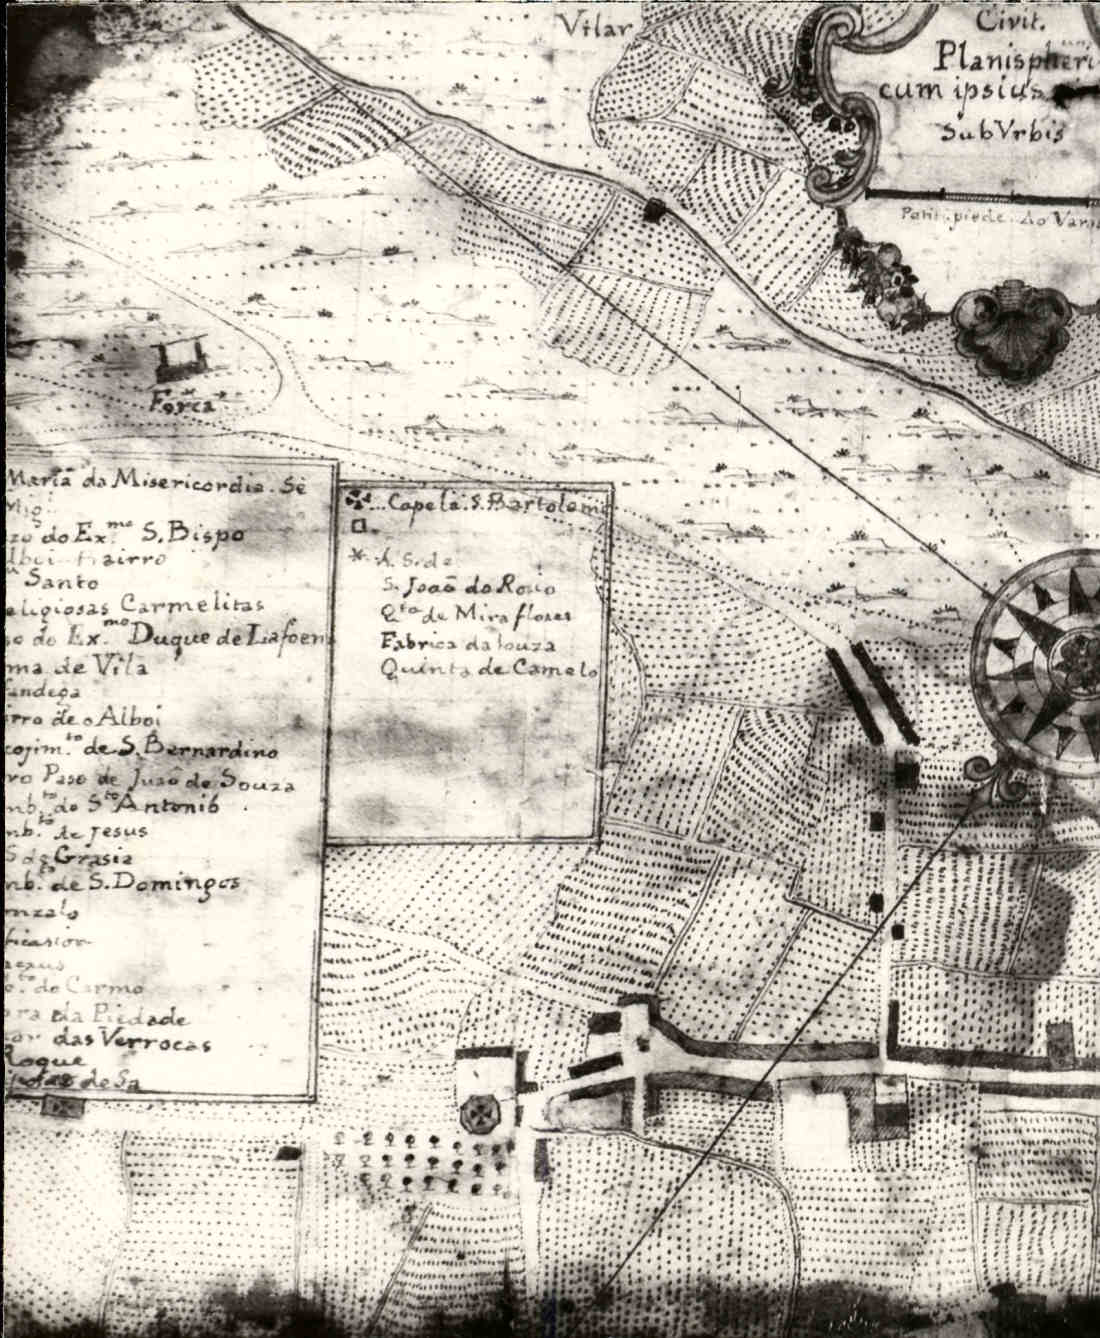 Vilar
Civit.
Planispheri
cum ipsius
SubVrbis
piede
Forca
Maria da Misericordia. Sé
Mig.
do Ex.mo S. Bispo
airro
Santo
eligiosas Carmelitas
so do Ex.mo Duque de Lafoen
ma de Vila
andega
rro de o Alboi
cojim.to de S. Bernardino
vo Paso de Juzo de Souza
nb.to do S.to Antonio
nb.to de Jesus
S de Grasia
nb.to de S. Domingos
onzalo
do Carmo
ora da Piedade
or das Verrocas
Roque
de Sa
Capela. S. Bartolome
S. Joaõ do Rosio
Q.ta de Miraflores
Fabrica da louza
Quinta de Camelo